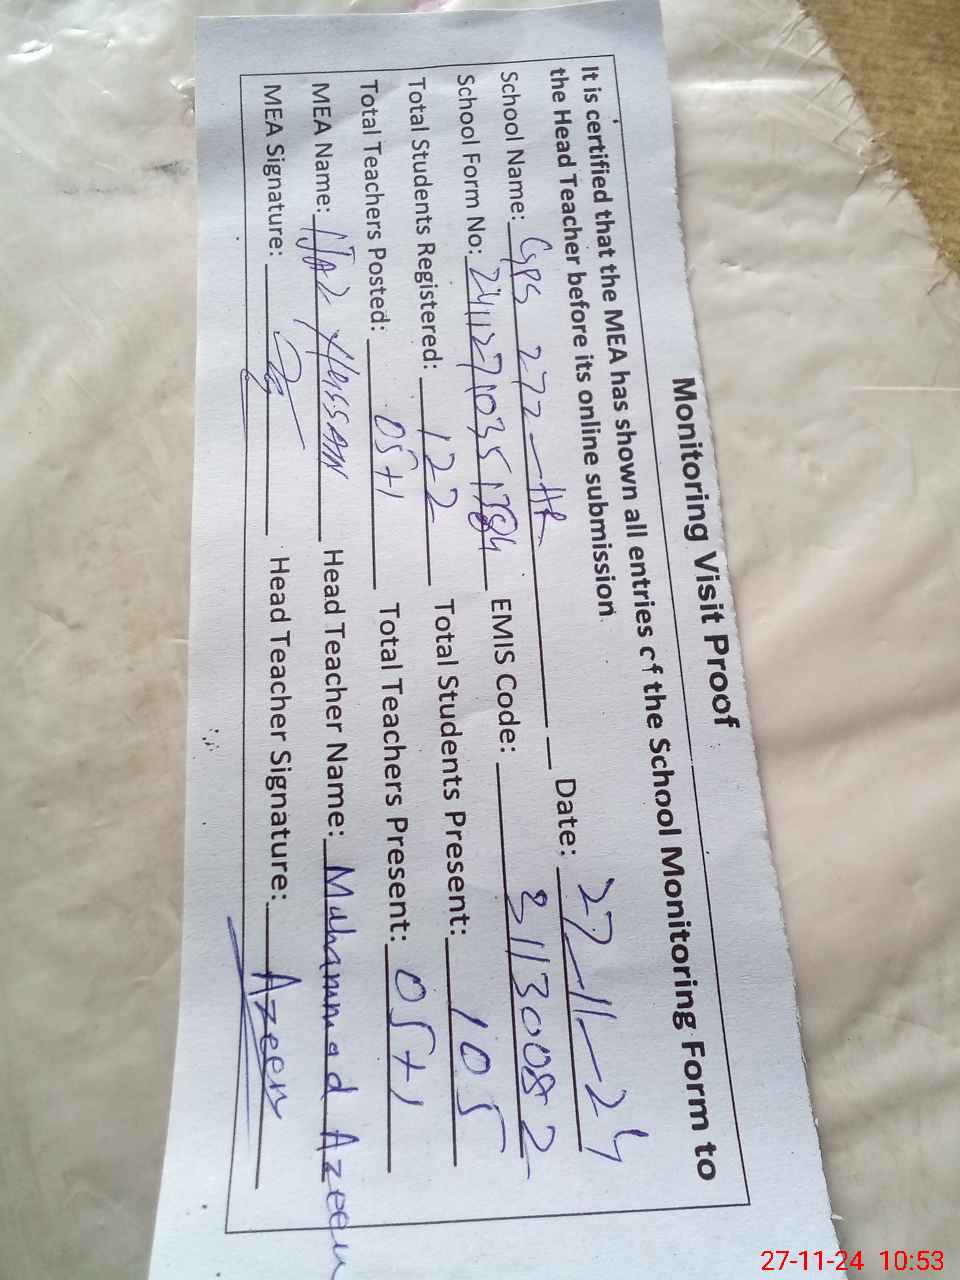 Monitoring Visit Proof
It is certified that the MEA has shown all entries of the School Monitoring Form to
the Head Teacher before its online submission.
School Name: GPS 272-HR Date: 27-11-24
School Form No: 24112710351384 EMIS Code: 31130082
Total Students Registered: 122 Total Students Present: 105
Total Teachers Posted: 05+1 Total Teachers Present: 05+1
MEA Name: HASSAN Head Teacher Name: Muhammad Azeem
MEA Signature: Head Teacher Signature: Azeem
27-11-24 10:53